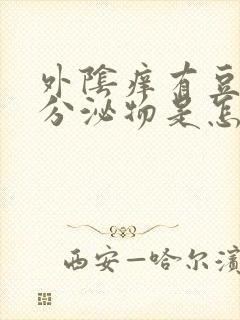 外陰痒有豆
分泌物是怎
西安—哈尔濱